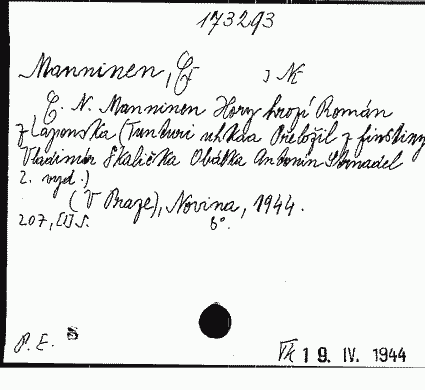 173293
Manninen, E
E. N. Manninen Hory hrozí Román
z Laponska (Tunturi uhkaa Přeložil z finštiny
Vladimír Skalička Obálka Antonín Strnadel
2. vyd.)
(V Praze), Novina, 1944.
207, [1] s. 8°.
P. E. S
19. IV. 1944